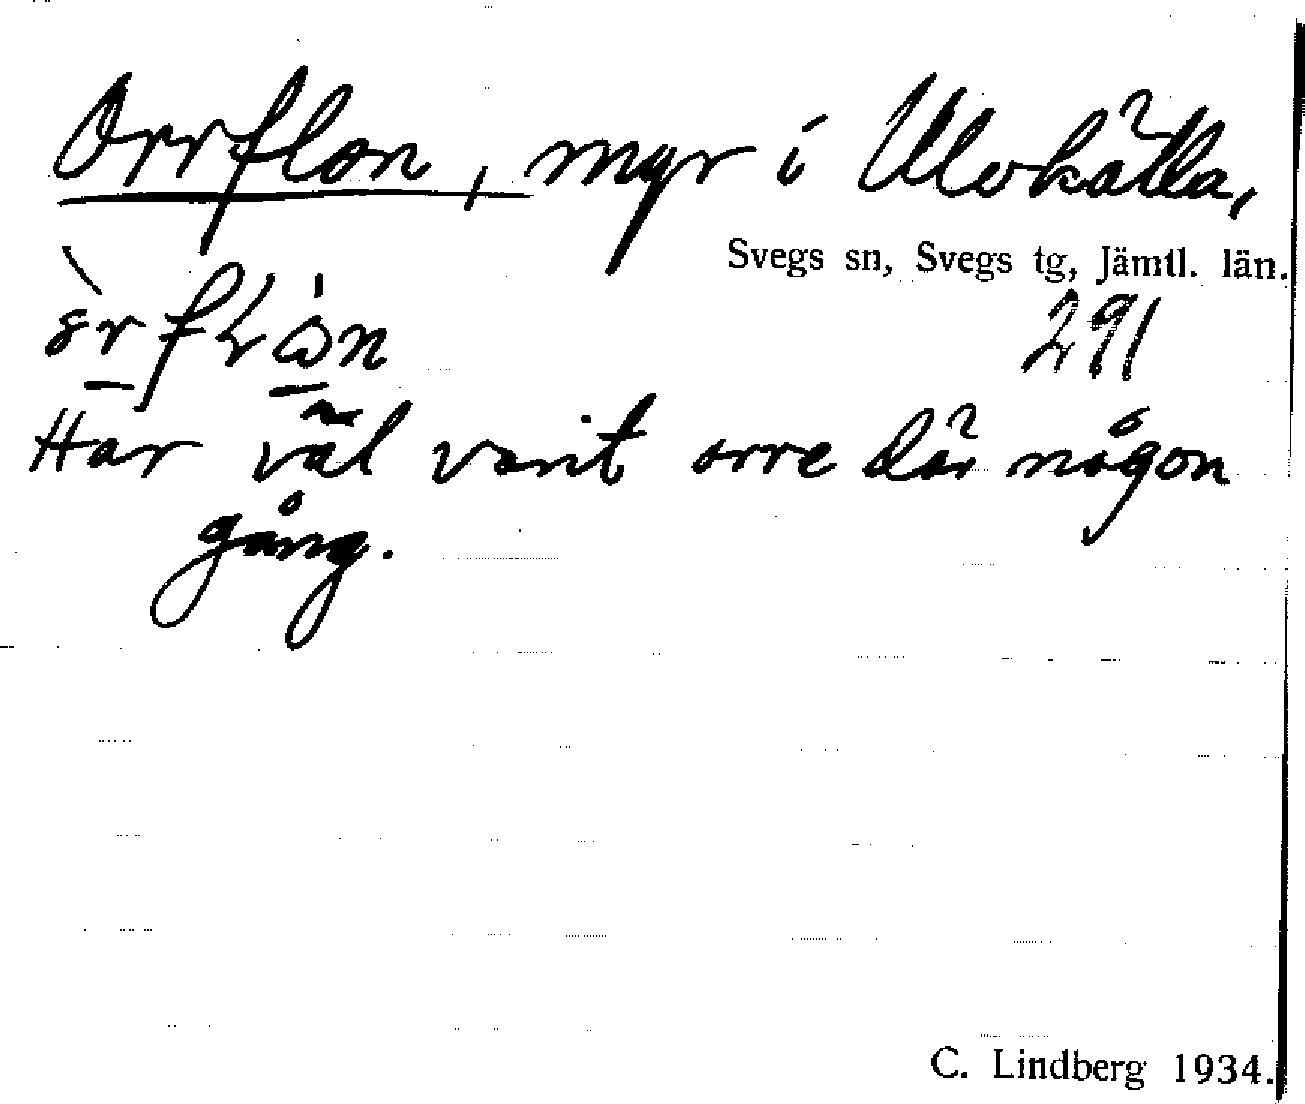 Orrflon, myr i Ulvkälla,
Svegs sn, Svegs tg, Jämtl. län.
291
Har väl varit orre där någon
gång.
C. Lindberg 1934.